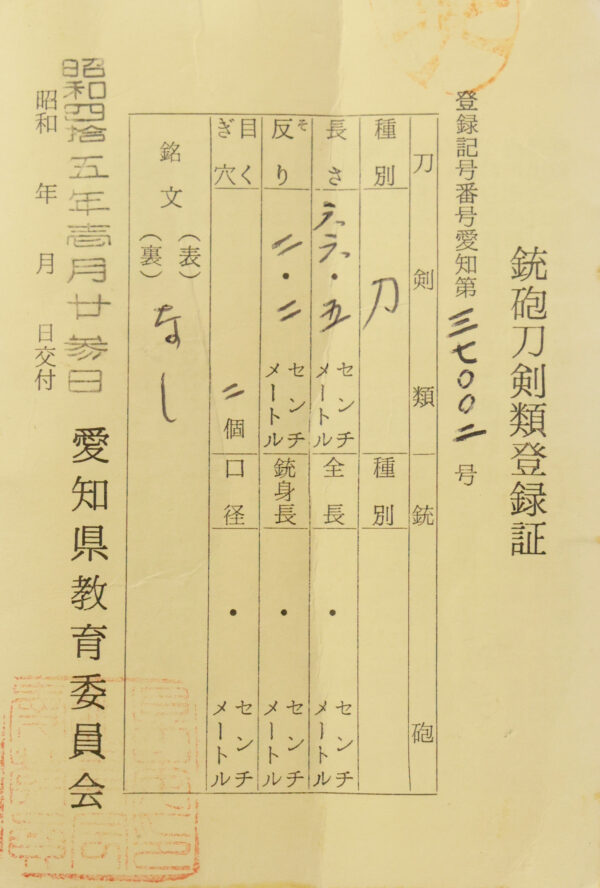 銃砲刀剣類登録証
登録記号番号愛知第三七〇〇二号
刀剣類
銃砲
種別 刀
種別
長さ 六六・五 センチメートル
全長 ・ センチメートル
反り そ 二・二 センチメートル
銃身長 ・ センチメートル
目くぎ穴 二個
口径 ・ センチメートル
銘文 (表) (裏) なし
昭和四拾五年壱月廿参日
昭和 年 月 日交付
愛知県教育委員会